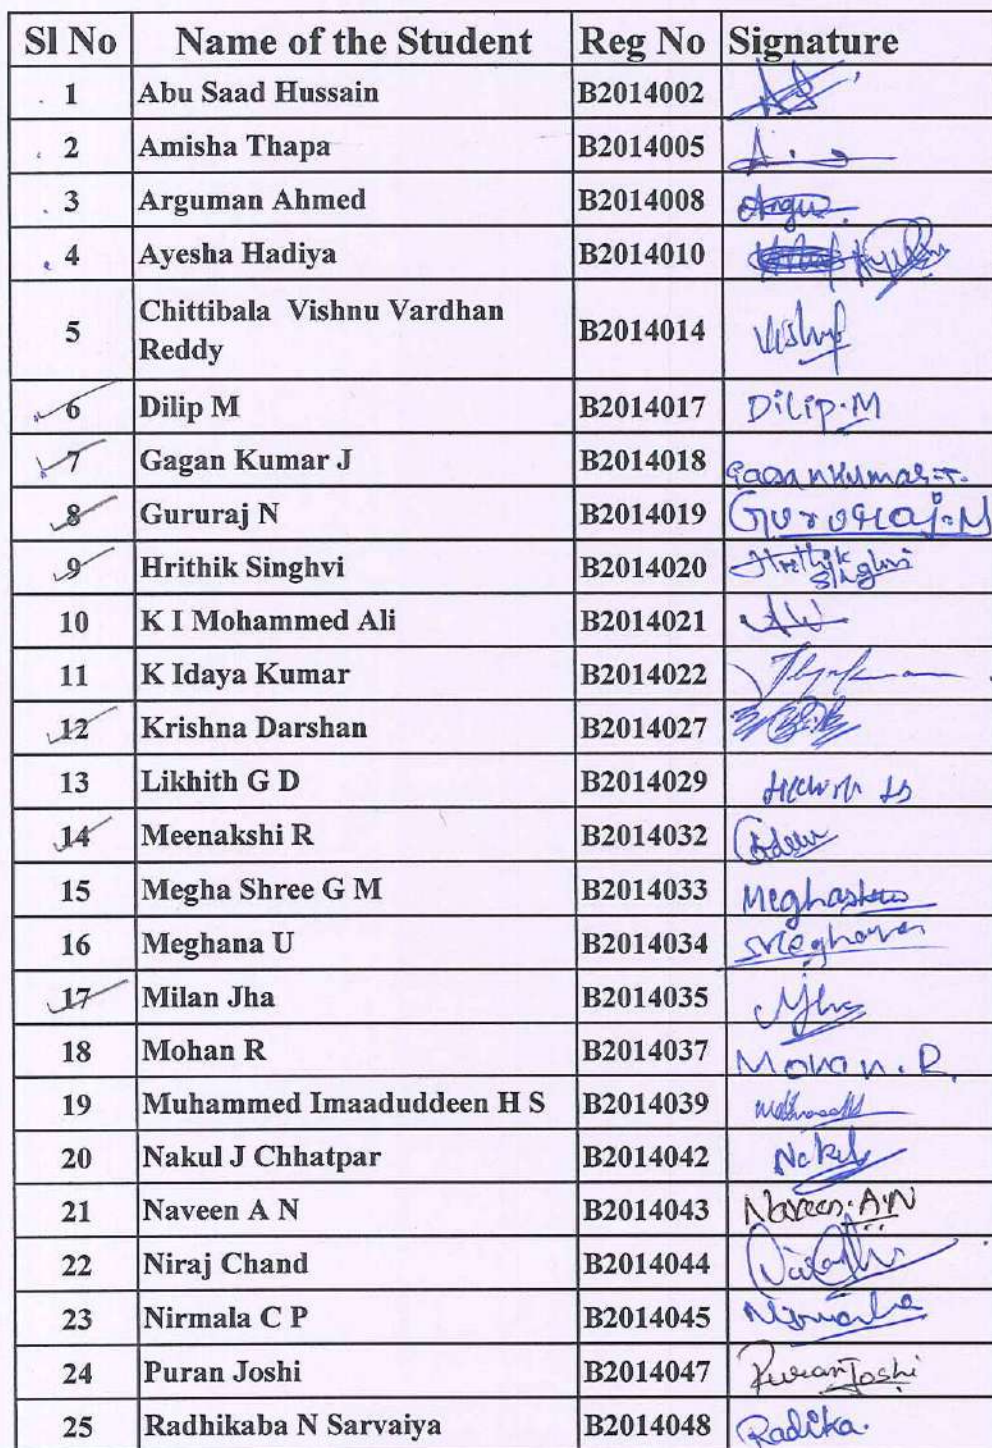 Sl No Name of the Student Reg No Signature
1 Abu Saad Hussain B2014002
2 Amisha Thapa B2014005
3 Arguman Ahmed B2014008
4 Ayesha Hadiya B2014010
5 Chittibala Vishnu Vardhan Reddy B2014014
6 Dilip M B2014017 Dilip.M
7 Gagan Kumar J B2014018
8 Gururaj N B2014019 Gururaj.N
9 Hrithik Singhvi B2014020 Hrithik Singhvi
10 K I Mohammed Ali B2014021
11 K Idaya Kumar B2014022
12 Krishna Darshan B2014027
13 Likhith G D B2014029
14 Meenakshi R B2014032
15 Megha Shree G M B2014033
16 Meghana U B2014034 Meghana
17 Milan Jha B2014035
18 Mohan R B2014037 Mohan.R
19 Muhammed Imaaduddeen H S B2014039
20 Nakul J Chhatpar B2014042 Nakul
21 Naveen A N B2014043 Naveen.A.N
22 Niraj Chand B2014044
23 Nirmala C P B2014045 Nirmala
24 Puran Joshi B2014047 Puran Joshi
25 Radhikaba N Sarvaiya B2014048 Radika.